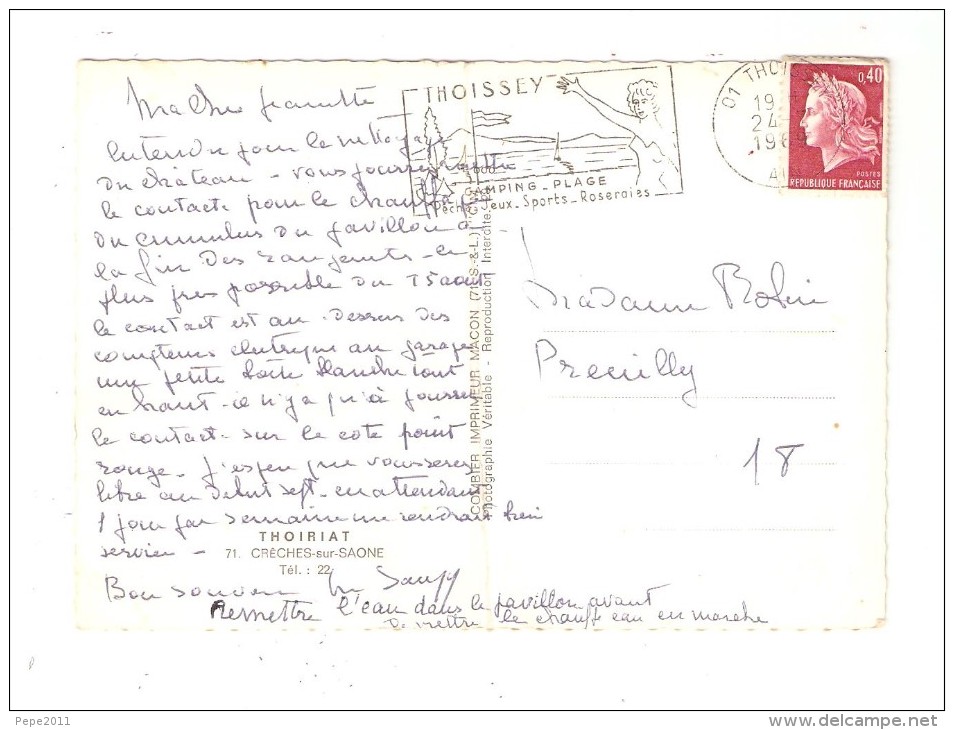 Ma chère Jeannette
Entendu pour le nettoyage
du château - vous pourrez mettre
le contact pour le chauffage
du cumulus du pavillon à
la fin des rangements - le
plus près possible du 15 août
le contact est au-dessus des
compteurs électrique au garage
une petite boîte blanche tout
en haut - il n'y a qu'à pousser
le contact - sur le côté point
rouge - J'espère que vous serez
libre au début sept - en attendant
1 jour par semaine me rendrait bien
service -
Bon souvenir
Remettre l'eau dans le pavillon avant
de mettre le chauffe eau en marche
THOIRIAT
71. CRÊCHES-sur-SAONE
Tél. : 22
COMBIER IMPRIMEUR MACON (71 S.-&-L.) "CIM"
Photographie Véritable - Reproduction Interdite
THOISSEY
CAMPING - PLAGE
Pêche - Jeux - Sports - Roseraies
01 THOI
19
24 -
196
0,40
POSTES
REPUBLIQUE FRANÇAISE
Madame Robin
Preuilly
18
Pepe2011
www.delcampe.net